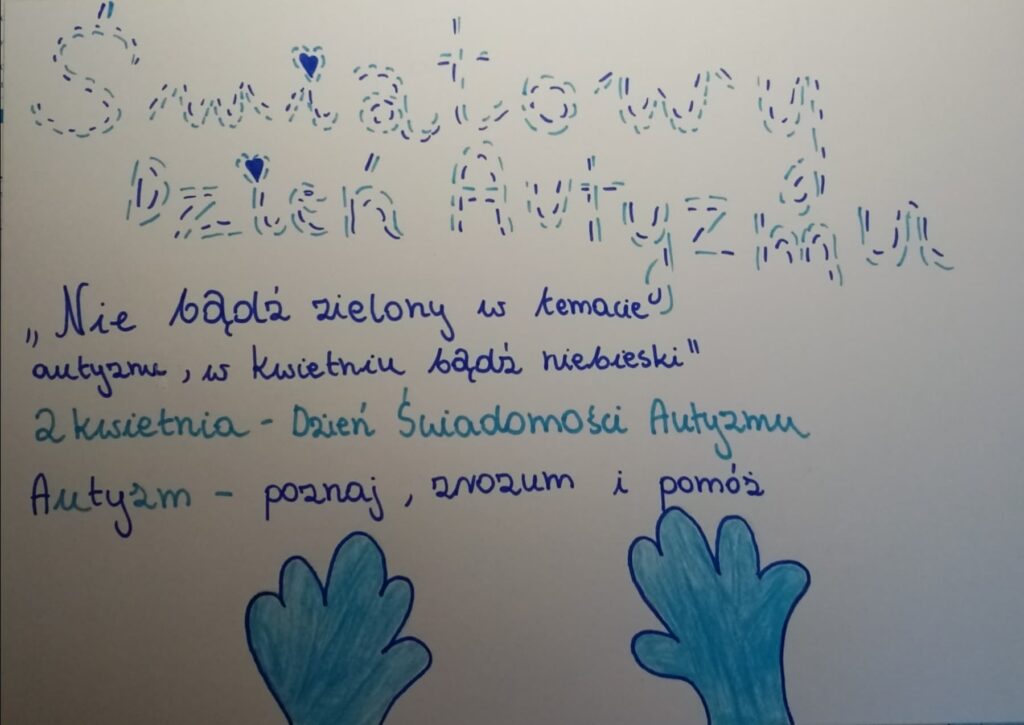 Światowy
Dzień Autyzmu
„Nie bądź zielony w temacie
autyzmu, w kwietniu bądź niebieski"
2 kwietnia - Dzień Świadomości Autyzmu
Autyzm - poznaj, zrozum i pomóż